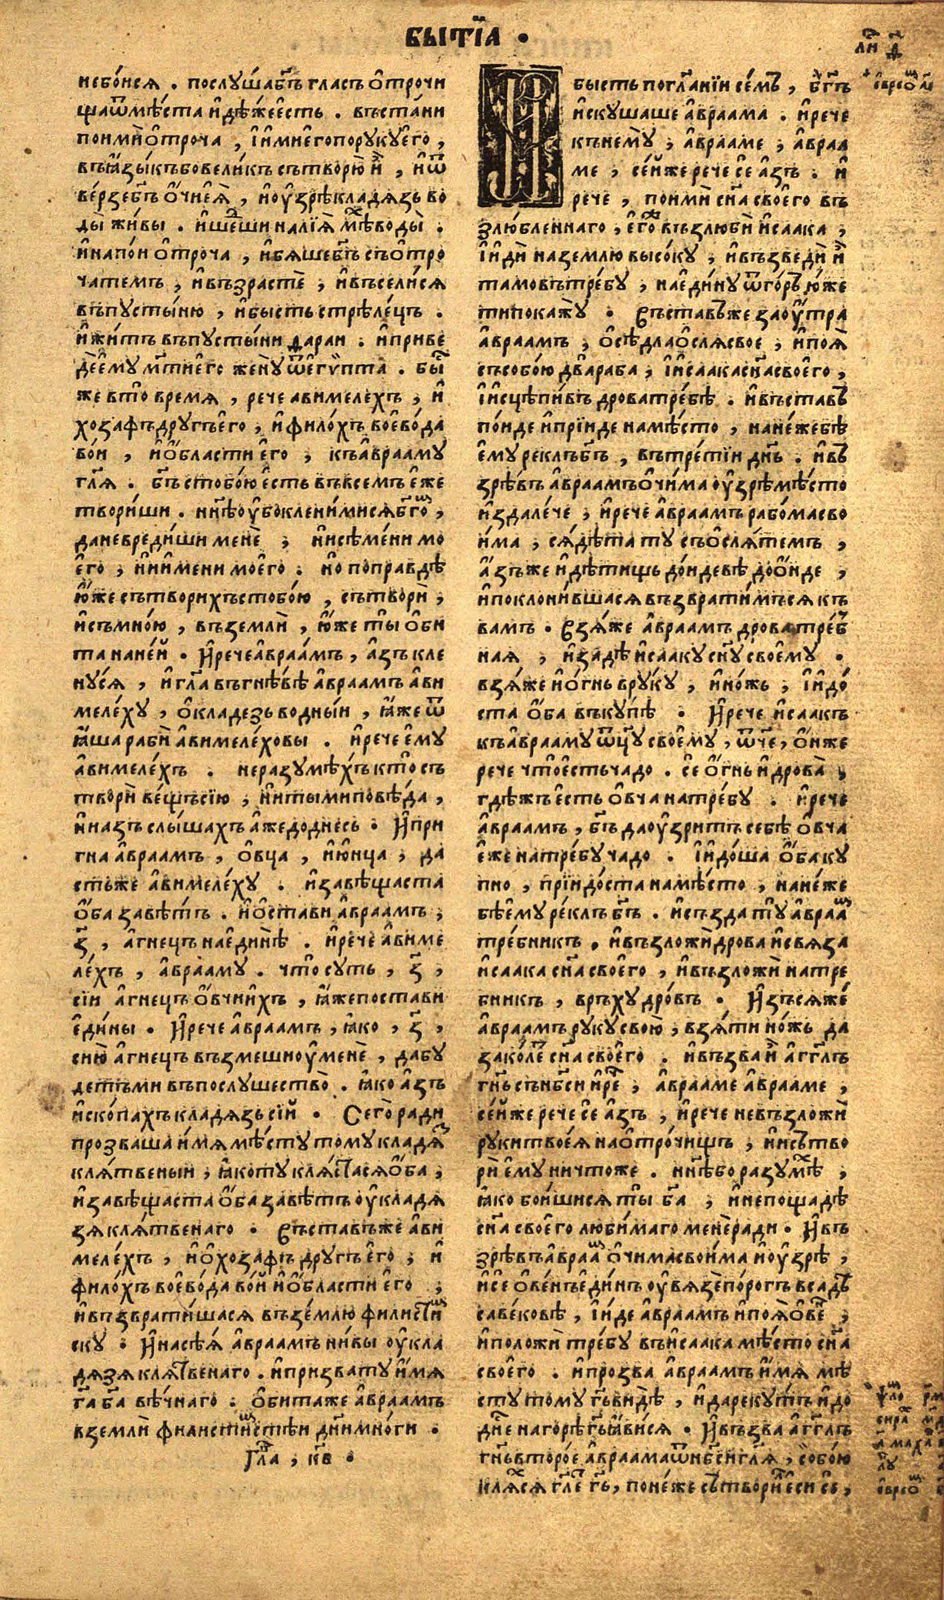 бытїа ·
небо́исѧ . послꙋ́ша бг҃ъ гласъ ѻ҆трочи
ща ѿмѣ́ста и҆дѣ́же є҆сть . въста́ни
пои́ми ѻ҆троча , и҆ и҆ми є҆го порꙋкꙋ є҆го ,
въ ꙗ҆зы́къ бо великъ сътворю̀ и҆̀ , и҆ ѿ
ве́рзе бг҃ъ ѻ҆чи є҆ѧ̀ , и҆ ꙋ҆зрѣ̀ кладѧзь во
ды̀ жи́вы . и҆ шедши налїѧ̀ мѣ́х воды̀ .
и҆ напоѝ ѻ҆троча , и҆ бѧше бг҃ъ съ ѻ҆тро
чатемъ , и҆ възрастѐ , и҆ въсели́сѧ
въ пꙋсты́ню , и҆ бы́сть стрѣле́цъ .
и҆ жи́тъ въ пꙋсты́ни фаран . и҆ приве
дѐ є҆мꙋ мт҃и є҆гѡ женꙋ̀ ѿ є҆гѵ́пта . бы́с
же в то время , рече авимеле́хъ , и҆
хозафъ дрꙋгъ є҆го , и҆ филохъ воево́да
вои , и҆ ѻ҆бласти є҆го ; къ а҆враамꙋ
гл҃ѧ . бг҃ъ с тобо́ю є҆сть въ всемъ є҆же
твори́ши . ны́нѣ ꙋ҆бо клени́ ми сѧ бг҃ом ,
да не вреди́ши мене̏ ; ни сѣ́мени мо
є҆го ; ни и҆мени моего . но по правдѣ
ю҆́же сътвори́хъ с тобо́ю , сътворѝ ;
и҆ съ мно́ю , въ землѝ , ю҆́же ты̀ ѻ҆би
та на не́й . И҆ рече а҆враа́мъ , а҆зъ кле
нꙋ́сѧ , и҆ гл҃а въ гнѣ́вѣ а҆враамъ а҆ви
меле́хꙋ , ѻ҆ кладезь водны́и , ꙗ҆же ѿ
ꙗ҆ша рабѝ а҆вимеле́ховы . и҆ рече є҆мꙋ
а҆вимеле́хъ . не разꙋмѣ́хъ кто̀ съ
творѝ ве́щъ сїю ; ни ты̀ ми повѣ́да ,
ни а҆зъ слы́шахъ а҆же до дне́сь . И҆ при
гна а҆враамъ , ѻ҆вца , и҆ ю҆нца ; да
стъ же а҆вимеле́хꙋ . и҆ завѣ́щаста
ѻ҆́ба завѣ́тъ . и҆ ѻ҆стави а҆враамъ ;
з҃ , а҆гнецъ на є҆ди́нѣ . и҆ рече а҆виме
ле́хъ , а҆враамꙋ . что̀ сꙋть , з҃ ,
сїи а҆гнецъ ѻ҆вчи́хъ , ꙗ҆же постави
є҆ди́ны . И҆ рече а҆враамъ , ꙗ҆ко , з҃ ,
сию̀ а҆гнецъ възмеши ꙋ҆ менѐ , да бꙋ
детъ ми въ послꙋшество̀ . ꙗ҆ко а҆зъ
и҆скопахъ кладѧзь сїй . Сего̀ ради
прозваша и҆мѧ мѣ́стꙋ томꙋ кладѧз
клѧ́твеный ; ꙗ҆ко тꙋ клѧ́стасѧ ѻ҆́ба ;
и҆ завѣ́щаста ѻ҆́ба завѣ́тъ ꙋ҆ кладѧ
зѧ клѧ́твенаго . Въставъ же а҆ви
меле́хъ , и҆ ѻ҆хозафъ дрꙋгъ є҆го ; и҆
фило́хъ воево́да вои̏ и҆ ѻ҆бласти є҆го ;
и҆ възврати́шасѧ въ зе́млю филисти́м
скꙋ . И҆ насѣѧ̀ а҆враамъ ни́вы ꙋ҆ кла
дѧзѧ клѧ́твенаго . и҆ призва тꙋ̀ и҆мѧ
га҃ ба҃ вѣ́чнаго . ѻ҆бита же а҆враамъ
в землѝ филисти́мстѣи дни̏ мно́ги .
Гла҃ , кв .
И҆бы́сть по гл҃ании се́мъ , бг҃ъ
и҆скꙋшаше а҆враама . и҆ рече
къ немꙋ̀ ; а҆врааме ; а҆враа
ме ; се́й же рече се а҆зъ . и҆
рече , пои́ми сн҃а своего въ
злюбленнаго , є҆го́же възлюбѝ и҆саака ;
и҆ и҆дѝ на землю̀ высо́кꙋ ; и҆ възведѝ и҆̀
тамо въ тре́бꙋ , на є҆ди́нꙋ ѿ го́ръ ю҆́же
ти покажꙋ̀ . Въставъ же заꙋ҆тра
а҆враамъ ; ѻ҆сѣдла ѻ҆слѧ свое ; и҆ поѧ̀
съ собо́ю два раба̀ ; и҆ и҆саака сн҃а своего ,
и҆ и҆сцѣпи́въ дрова тре́бѣ . и҆ въставъ
по́иде и҆ прїиде на мѣ́сто , на не́же бѣ
є҆мꙋ реклъ бг҃ъ , въ тре́тїи дн҃ь . и҆ въ
зрѣ́въ а҆враамъ ѻ҆чима ꙋ҆зрѣ̀ мѣ́сто
и҆здале́че ; и҆ рече а҆враамъ рабома сво
и́ма ; сѧдѣта тꙋ съ ѻ҆слѧ́темъ ,
а҆́зъ же и҆ дѣ́тищь до́идевѣ до ѻ҆́нде ,
и҆ поклони́вшасѧ възврати́мъсѧ къ
вамъ . Взѧ́же а҆враамъ дрова тре́б
наѧ ; и҆ взадѣ̀ и҆саакꙋ сн҃ꙋ своемꙋ .
взѧ́же и҆ ѻ҆гнь в рꙋкꙋ , и҆ но́жь ; и҆ и҆до́
ста ѻ҆́ба въ кꙋпѣ . И҆ рече и҆саакъ
къ а҆враамꙋ ѿцꙋ̀ своемꙋ , ѿче , ѻ҆н же
рече что̀ є҆сть ча́до . се ѻ҆́гнь и҆ дрова̀ ;
гдѣ́жъ є҆сть ѻ҆вча на тре́бꙋ . и҆ рече
а҆враамъ , бг҃ъ да ꙋ҆зритъ себѣ̀ ѻ҆вча
є҆́же на тре́бꙋ ча́до . и҆ и҆до́ша ѻ҆́ба кꙋ
пно , прїидо́ста на мѣ́сто , на не́же
бѣ̀ є҆мꙋ ре́клъ бг҃ъ . и҆ създа тꙋ̀ а҆враам
тре́бникъ . и҆ възложѝ дрова и҆ свѧза
и҆саака сн҃а своего , и҆ възложѝ на тре
бникъ , врьхꙋ дро́въ . И҆ зъсѧже́
а҆враамъ рꙋкꙋ свою̀ ; взѧти но́жь да
зако́лет сн҃а своего . и҆ възва и҆̀ а҆гг҃лъ
гн҃ь съ нб҃си и҆ рече̏ ; а҆врааме а҆врааме ,
се́й же рече се а҆зъ , и҆ рече не възложѝ
рꙋки твоеѧ на ѻ҆тро́чищъ ; ни сътво
рѝ є҆мꙋ ничтоже . ны́нѣ бо разꙋмѣ́х ;
ꙗ҆ко бои́шисѧ ты̀ ба҃ ; и҆ не пощадѣ
сн҃а своего люби́маго менѐ ради . И҆ въ
зрѣ́въ а҆враам ѻ҆чима свои́ма и҆ ꙋ҆зрѣ ,
и҆ се ѻ҆ве́нъ є҆ди́нъ ꙋ҆вѧзе по рогъ в садѣ
савековѣ , и҆ и҆де а҆враамъ и҆ поѧ̀ ѻ҆ве́н ;
и҆ положѝ тре́бꙋ въ и҆саака мѣсто сн҃а
своего . и҆ прозва а҆враамъ и҆мѧ мѣ
стꙋ томꙋ гь҃ видѣ̀ , и҆ да рекꙋтъ и҆ до
дне́с на горѣ̀ гь҃ ꙗ҆ви́сѧ . И҆ възва а҆гг҃лъ
гн҃ь второ́е а҆враама ѿ нб҃си гл҃ѧ , собо́ю
клѧ́хсѧ гл҃ет гь҃ , поне́же сътвори́л є҆си се ,